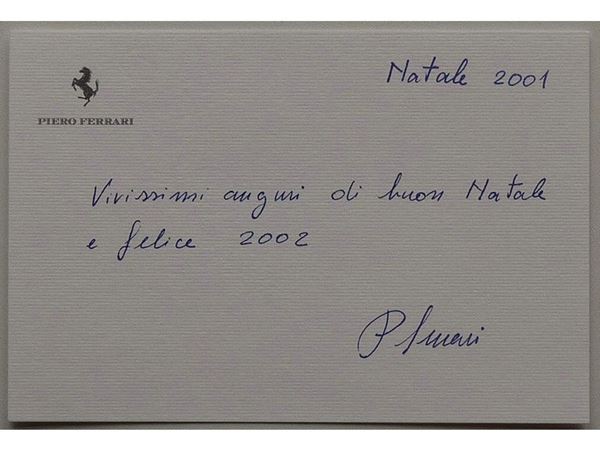 Natale 2001
PIERO FERRARI
Vivissimi auguri di buon Natale
e felice 2002
P Ferrari